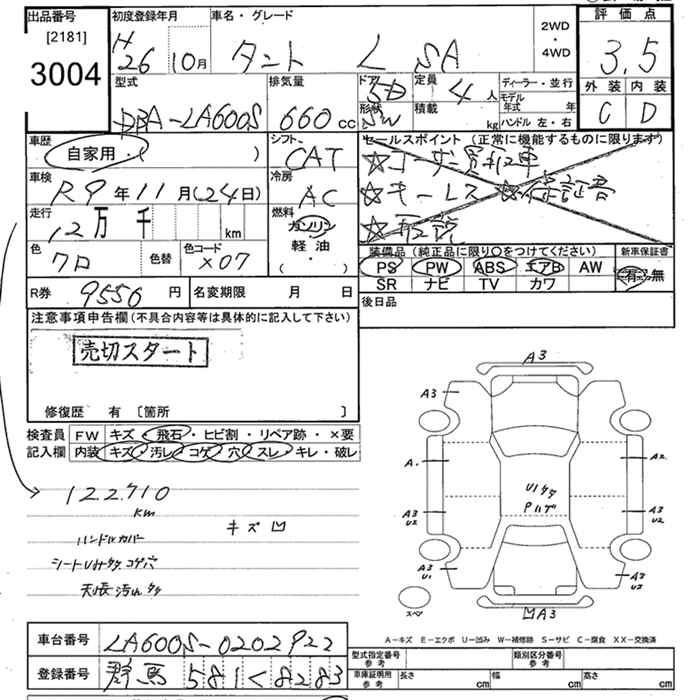 出品番号 初度登録年月 車名・グレード 2WD・4WD 評価点
[2181]
3004 H26 10月 タント L SA 3.5
型式 排気量 ドア 5D 定員 4人 ディーラー・並行 外装 内装
DBA-LA600S 660cc 形状 SW 積載 kg モデル年式 年 C D
ハンドル 左・右
車歴 自家用・( ) シフト CAT セールスポイント (正常に機能するものに限ります)
☆ユーザー買取車
車検 R9年11月(24日) 冷房 AC ☆キーレス ☆保証書
走行 12万 千 km 燃料 ガソリン 軽油 (・) ☆取説
色 クロ 色替 色コード X07 装備品 (純正品に限り〇をつけてください) 新車保証書
PS PW ABS エアB AW 有・無
R券 9550円 名変期限 月 日 SR ナビ TV カワ
後日品
注意事項申告欄 (不具合内容等は具体的に記入して下さい)
売切スタート
修復歴 有 [箇所 ]
検査員 FW キズ・飛石・ヒビ割・リペア跡・×要
記入欄 内装 キズ・汚レ・コゲ・穴・スレ・キレ・破レ
122.710
km
キズ 凹
ハンドルカバー
シートUキタ コゲ穴
天張汚れ
A3
A3
A. A2
U1キタ
Pハゲ
A3 U2 A3 U2
A3 U1 A3 U2
スペア
凹A3
A-キズ E-エクボ U-凹み W-補修跡 S-サビ C-腐食 XX-交換済
車台番号 LA600S-0202922
型式指定番号 参考 類別区分番号 参考
登録番号 群馬 581 く 8283
車庫証明用 参考 長さ cm 幅 cm 高さ cm